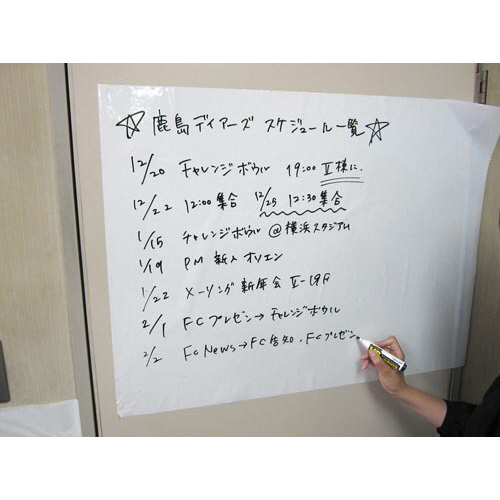 ☆鹿島ディアーズ スケジュール一覧☆
12/20 チャレンジボウル 19:00 II様に.
12/22 12:00集合 12/25 12:30集合
1/15 チャレンジボウル @横浜スタジアム
1/19 PM 新人オリエン
1/22 メーリング新年会
2/1 FCプレゼン→チャレンジボウル
2/2 FC News→FC告知・FCプレゼン